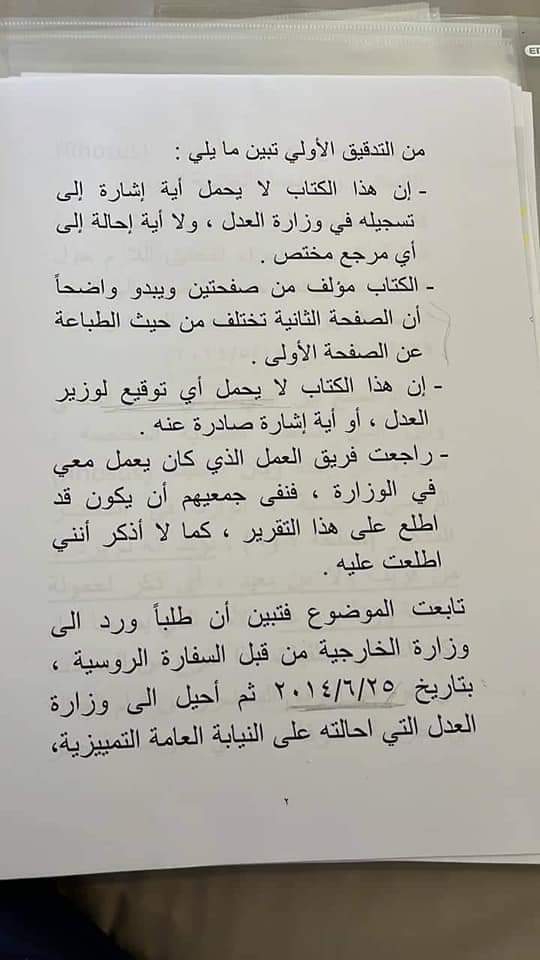 من التدقيق الأولي تبين ما يلي :
- إن هذا الكتاب لا يحمل أية إشارة إلى
تسجيله في وزارة العدل ، ولا أية إحالة إلى
أي مرجع مختص .
- الكتاب مؤلف من صفحتين ويبدو واضحاً
أن الصفحة الثانية تختلف من حيث الطباعة
عن الصفحة الأولى .
- إن هذا الكتاب لا يحمل أي توقيع لوزير
العدل ، أو أية إشارة صادرة عنه .
- راجعت فريق العمل الذي كان يعمل معي
في الوزارة ، فنفى جمعيهم أن يكون قد
اطلع على هذا التقرير ، كما لا أذكر أنني
اطلعت عليه .
تابعت الموضوع فتبين أن طلباً ورد الى
وزارة الخارجية من قبل السفارة الروسية ،
بتاريخ ٢٠١٤/٦/٢٥ ثم أحيل الى وزارة
العدل التي احالته على النيابة العامة التمييزية،
٢